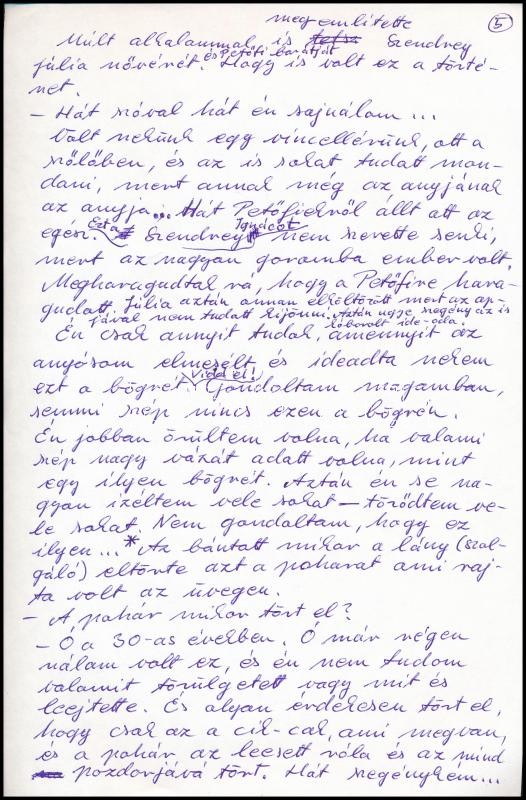 5
megemlítette
Múlt alkalommal is Szendrey
és Petőfi barátját
Júlia nővérét. Hogy is volt ez a törté-
net.
- Hát szóval hát én sajnálom...
Volt nekünk egy vincellérünk, ott a
szőlőben, és az is sokat tudott mon-
dani, mert annak még az anyjának
az anyja... Hát Petőfiékről állt ott az
egész. Ezt a Szendrey Ignácot nem szerette senki,
mert az nagyon goromba ember volt.
Megharagudtak rá, hogy a Petőfire hara-
gudott. Júlia aztán onnan elköltözött mert az ap-
jával nem tudott kijönni. Aztán ugye szegény az is
kóborolt ide-oda.
Én csak annyit tudok, amennyit az
anyósom elmesélt és ideadta nekem
ezt a bögrét. Vidd el! Gondoltam magamban,
semmi szép nincs ezen a bögrén.
Én jobban örültem volna, ha valami
szép nagy vázát adott volna, mint
egy ilyen bögrét. Aztán én se na-
gyon izéltem vele sokat - törődtem ve-
le sokat. Nem gondoltam, hogy ez
ilyen...* Az bántott mikor a lány (szol-
gáló) eltörte azt a poharat ami raj-
ta volt az üvegen.
- A pohár mikor tört el?
- Ó a 30-as években. Ó már régen
nálam volt ez, és én nem tudom
valamit törülgetett vagy mit és
leejtette. És olyan érdekesen tört el,
hogy csak az a cik-cak, ami megvan,
és a pohár az leesett róla és az mind
pozdorjává tört. Hát szegénykém...